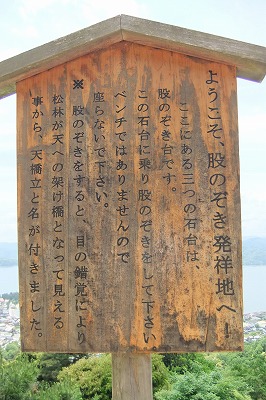 ようこそ、股のぞき発祥地へ！
ここにある三つの石台は、
股のぞき台です。
この石台に乗り股のぞきをして下さい
ベンチではありませんので
座らないで下さい。
※ 股のぞきをすると、目の錯覚により
松林が天への架け橋となって見える
事から、天橋立と名が付きました。